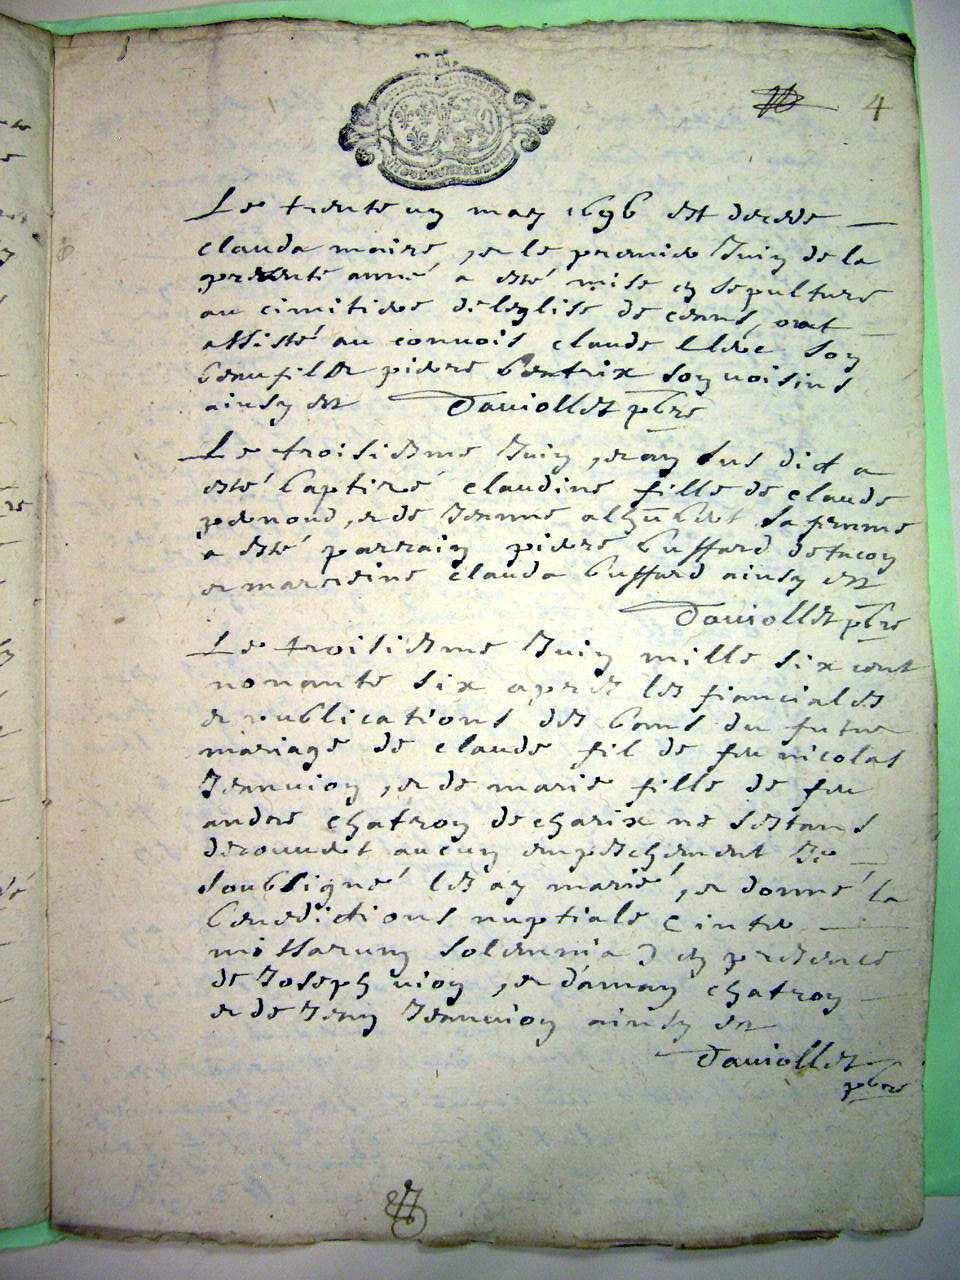 4
Le trente un may 1696 est decede
clauda maire, et le premier Juin de la
presente anné a esté mise en sepulture
au cimitiere de leglise de ceans, ont
assisté au convois claude son
beaufils et pierre bentrix son voisins
ainsy est Daviollet pbre
Le troisiesme Juin, et an sus dict a
esté baptizé claudine fille de claude
pernoud, et de Jeanne sa femme
a esté parrain pierre buffard
et marreine clauda buffard ainsy est
Daviollet pbre
Le troisiesme Juin mille six cent
nonante six apres les fiancialles
et publications des bans du futur
mariage de claude fil de feu nicolas
Jeanvion, et de marie fille de feu
andre chatron de charix ne sestans
decouvert aucun empeschement Je
soubsigné les ay marié, et donné la
benedictions nuptiale (inter
missarum solemnia) en presence
de Joseph vion, et damay chatron
et de Jean Jeanvion ainsy est
Daviollet
pbre